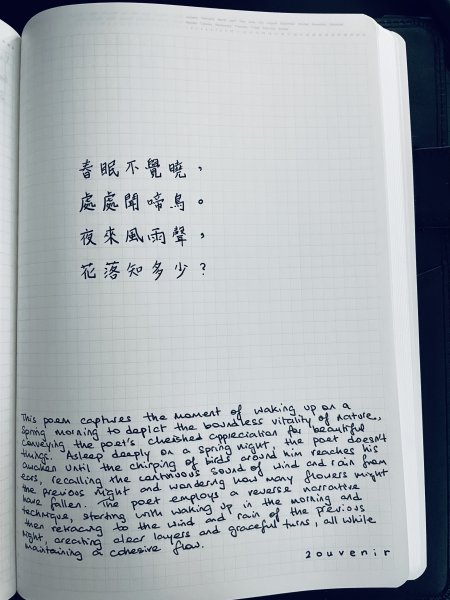 春眠不覺曉，
處處聞啼鳥。
夜來風雨聲，
花落知多少？
This poem captures the moment of waking up on a
spring morning to depict the boundless vitality of nature,
conveying the poet's cheished appreciation for beautiful
things. Asleep deeply on a spring night, the poet doesn't
awaken until the chirping of birds around him reaches his
ears, recalling the continuous sound of wind and rain from
the previous night and wondering how many flowers might
have fallen. The poet employs a reverse narrative
technique, starting with waking up in the morning and
then retracing to the wind and rain of the previous
night, creating clear layers and graceful turns, all while
maintaining a cohesive flow.
2ouvenir